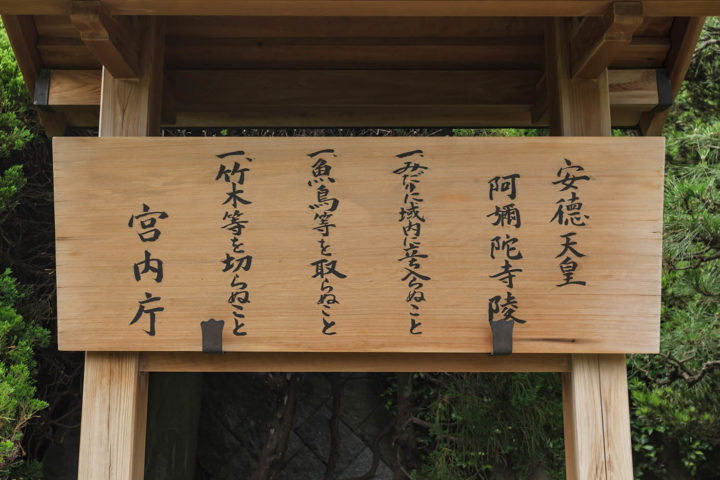 安德天皇
阿彌陀寺陵
一、みだりに域内に立ち入らぬこと
一、魚鳥等を取らぬこと
一、竹木等を切らぬこと
宮内庁